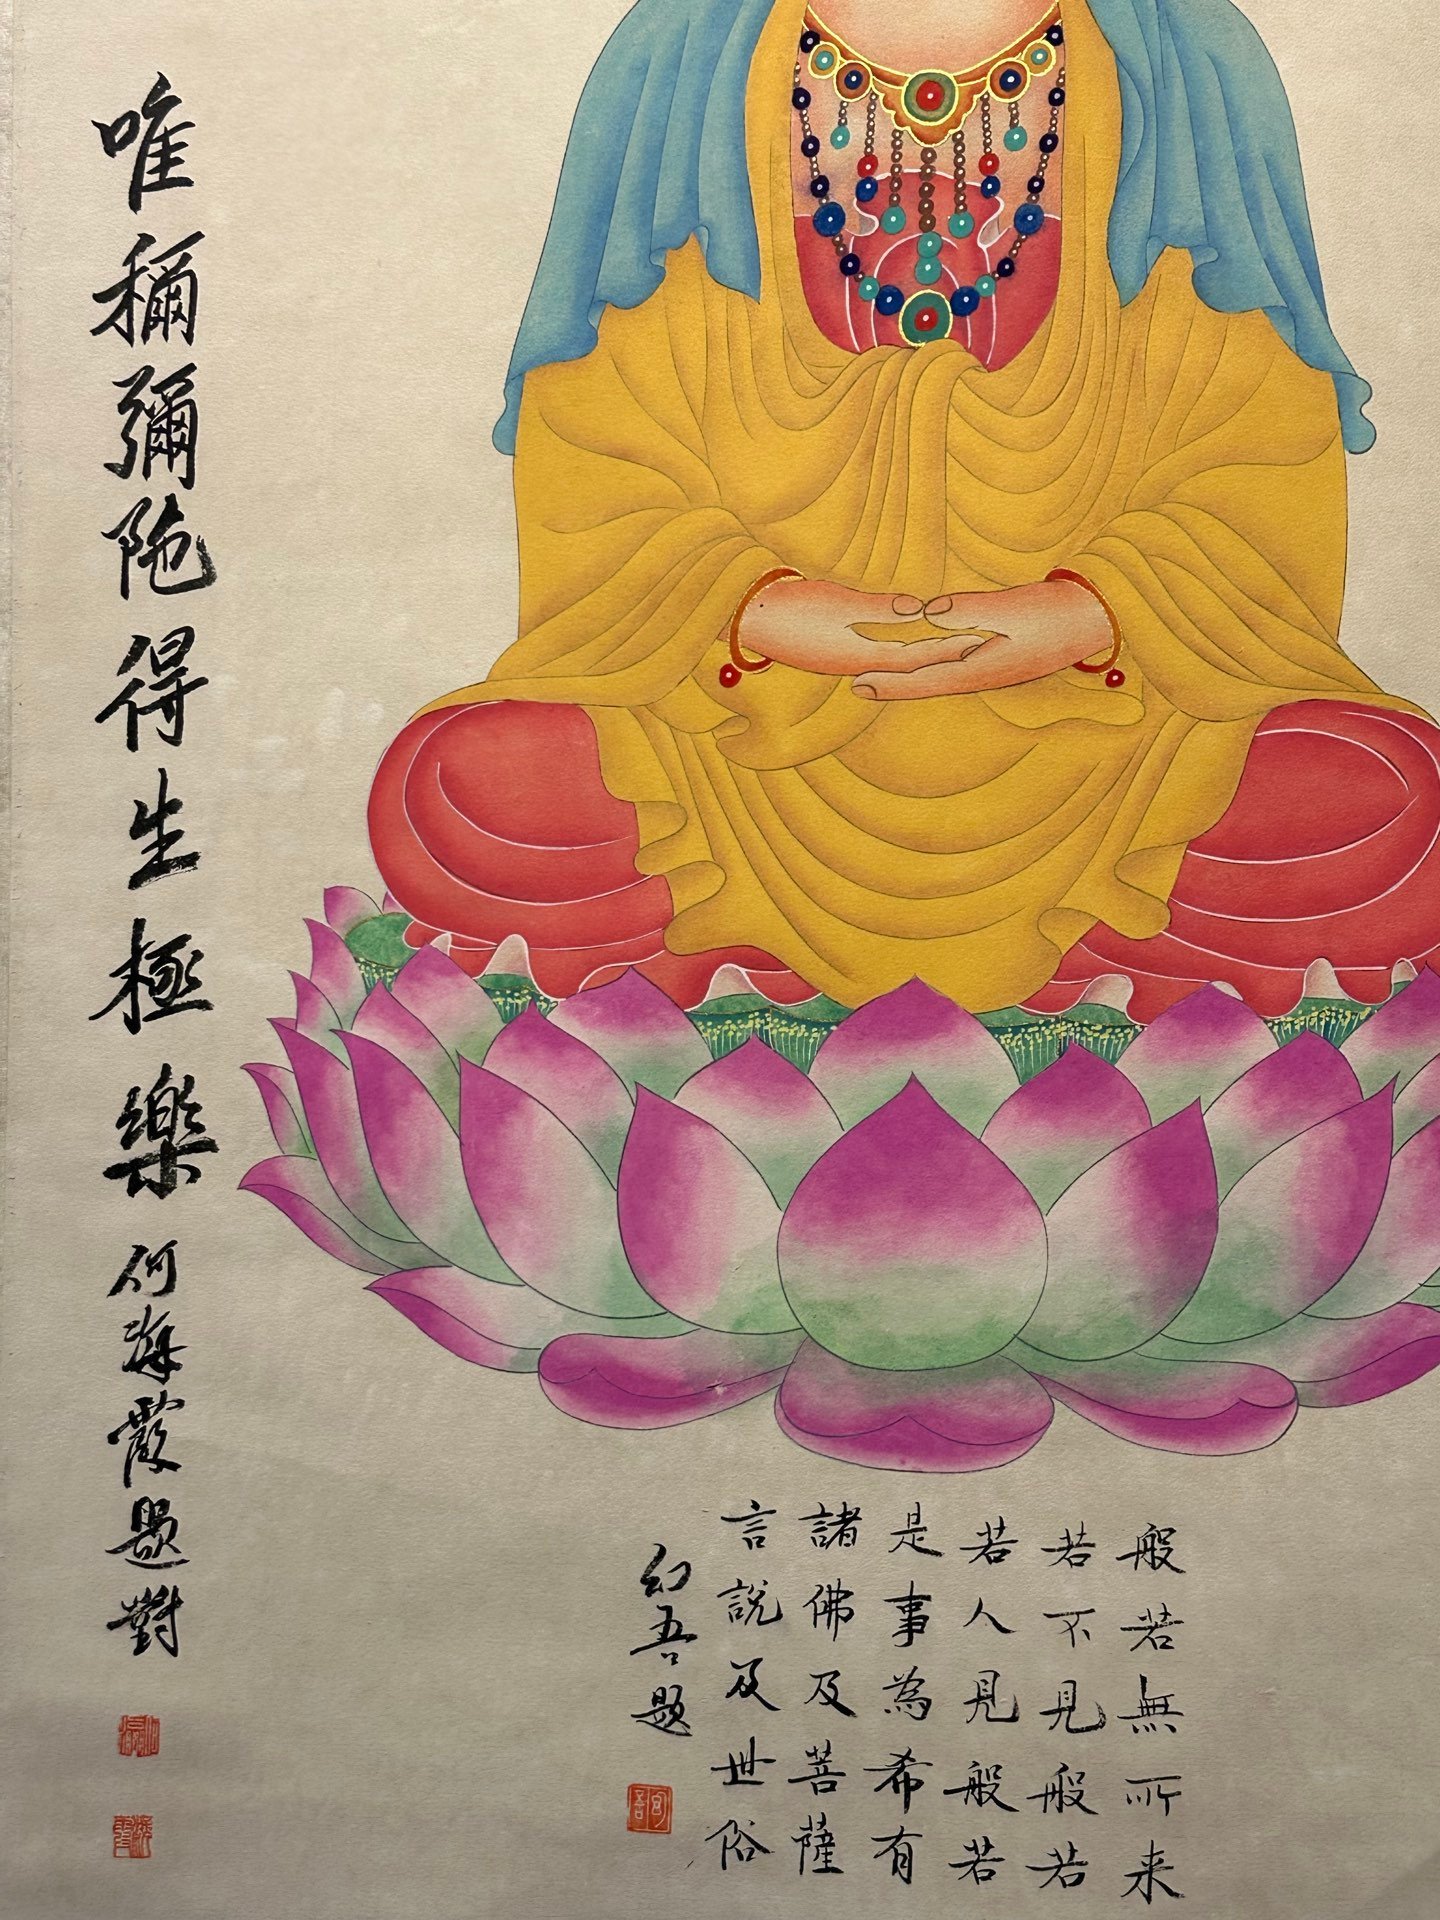 般若無所来
若不見般若
若人見般若
是事為希有
諸佛及菩薩
言說及世俗
幻吾題
唯稱彌陁得生極樂
何海霞題對